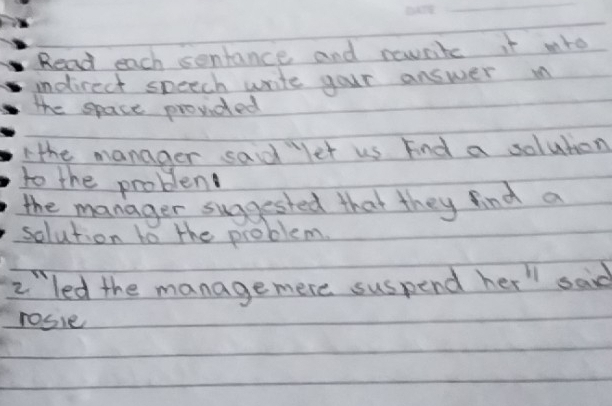 DATE
Read each sentance and rewrite it into
indirect speech write your answer in
the space provided
1 the manager said "let us find a solution
to the problem.
the manager suggested that they find a
solution to the problem.
2 "led the managemere suspend her" said
rosie